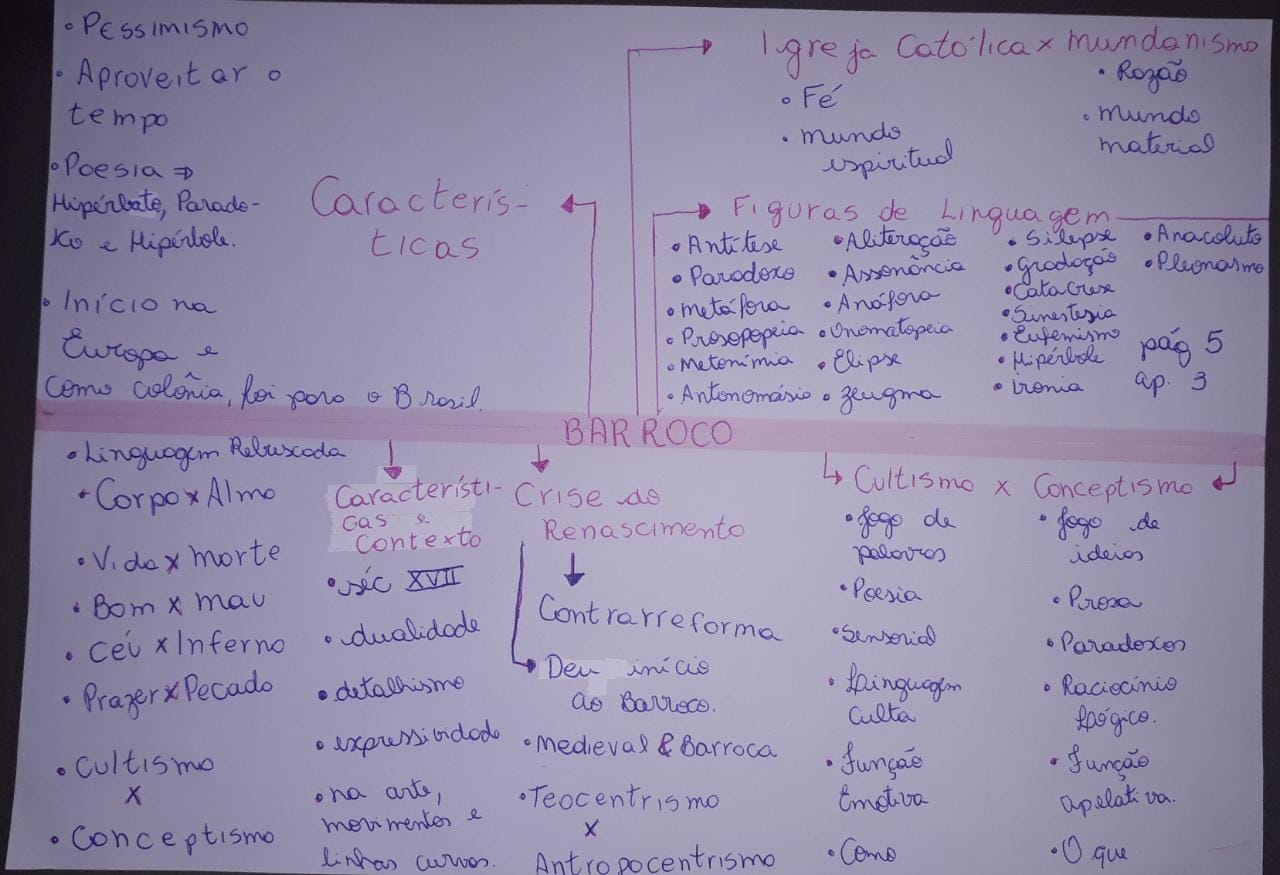 • Pessimismo
• Aproveitar o
tempo
• Poesia ⇒
Hipérbato, Parado-
xo e Hipérbole.
• Início na
Europa e
como colônia, foi para o Brasil.
Caracterís-
ticas
Igreja Católica x mundanismo
• Fé
• mundo
espiritual
• Razão
• mundo
material
Figuras de Linguagem
• Antítese
• Paradoxo
• metáfora
• Prosopopeia
• Metonímia
• Antonomásia
• Aliteração
• Assonância
• Anáfora
• Onomatopeia
• Elipse
• Zeugma
• Silepse
• Gradação
• Catacrese
• Sinestesia
• Eufemismo
• Hipérbole
• Ironia
• Anacoluto
• Pleonasmo
pág 5
ap. 3
BARROCO
• Linguagem Rebuscada
• Corpo x Alma
• Vida x morte
• Bom x mau
• Céu x Inferno
• Prazer x Pecado
• Cultismo
x
• Conceptismo
Característi-
cas e
Contexto
• séc XVII
• dualidade
• detalhismo
• expressividade
• na arte,
movimentos e
linhas curvas.
Crise do
Renascimento
Contrarreforma
Deu início
ao Barroco.
• Medieval & Barroca
• Teocentrismo
x
Antropocentrismo
Cultismo x Conceptismo
• Jogo de
palavras
• Poesia
• Sensorial
• Linguagem
culta
• Função
Emotiva
• Como
• Jogo de
ideias
• Prosa
• Paradoxos
• Raciocínio
Lógico.
• Função
apelativa.
• O que